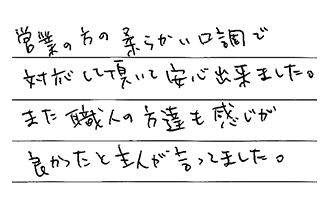 営業の方の柔らかい口調で
対応して頂いて安心出来ました。
また職人の方達も感じが
良かったと主人が言ってました。